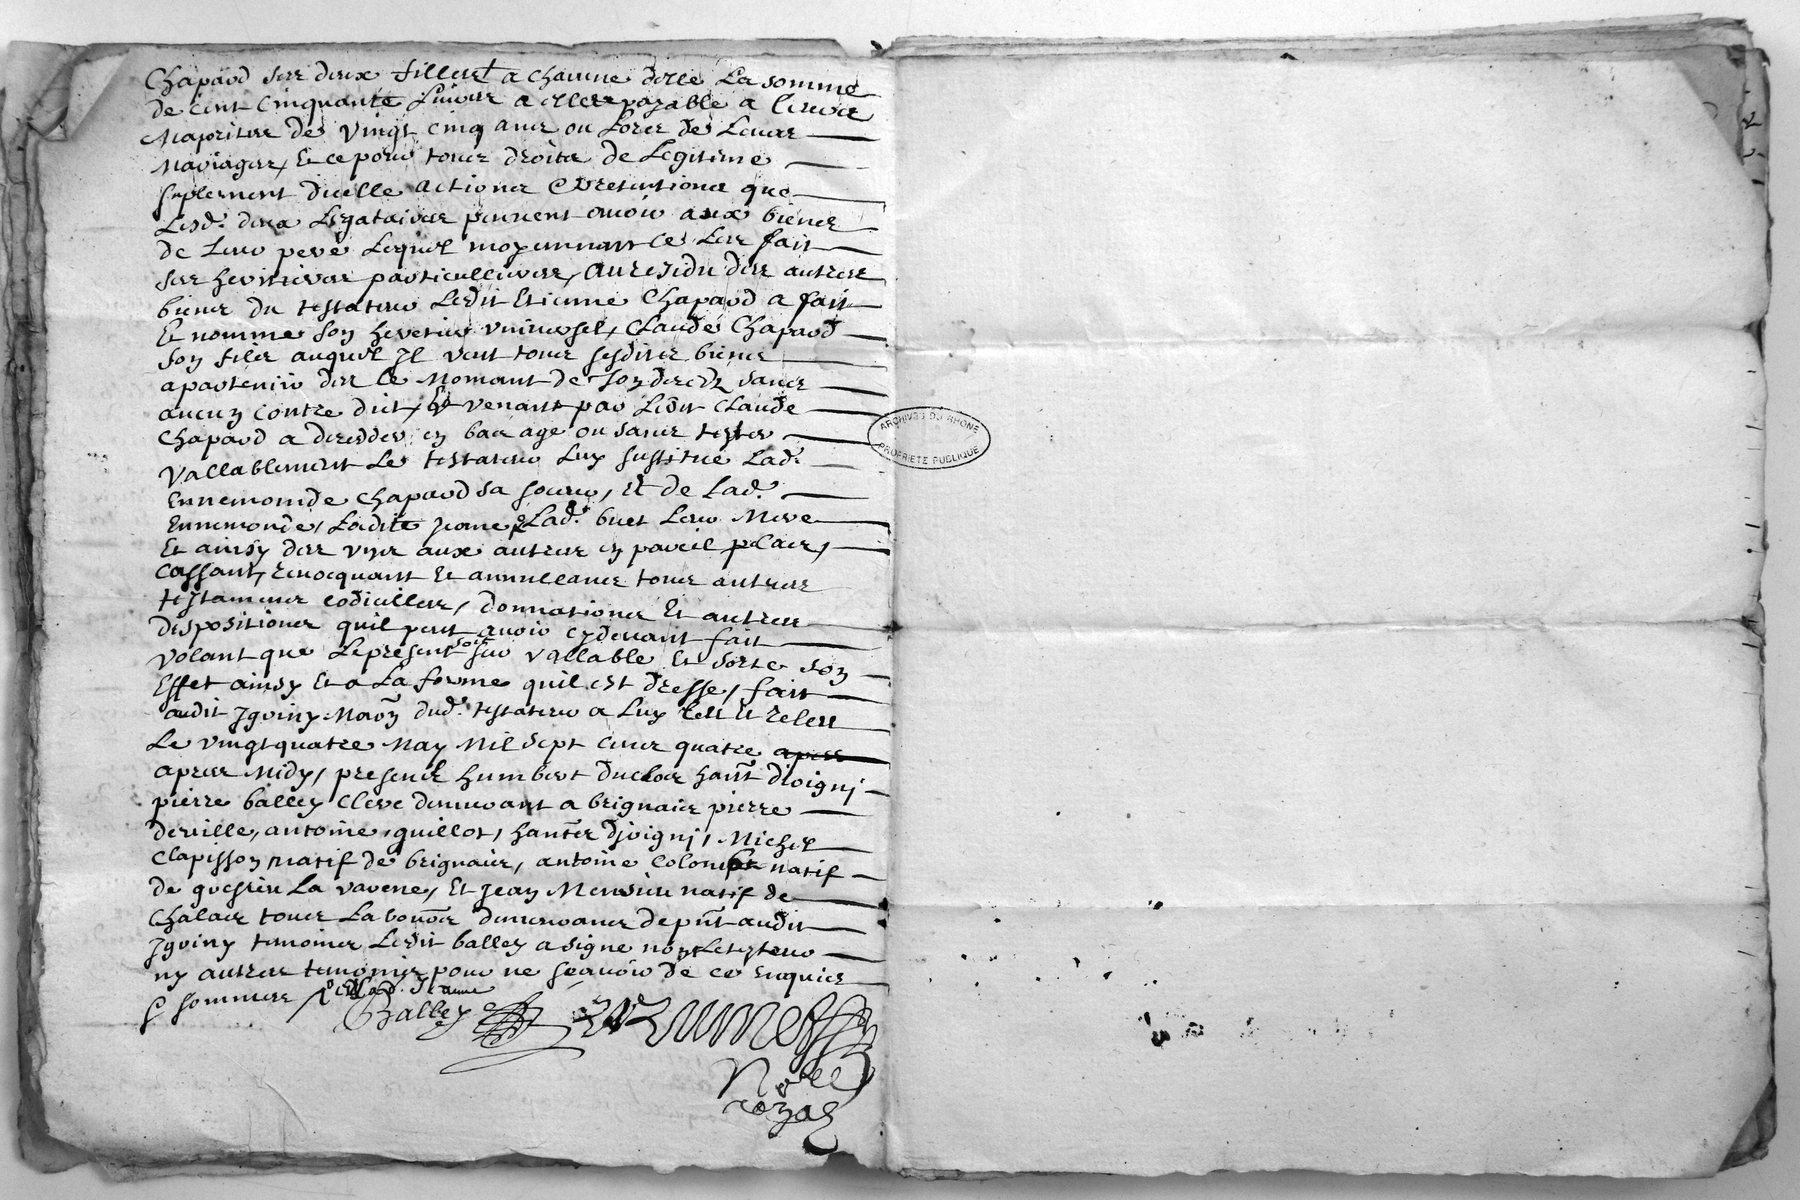 Chapard ses deux filles + a chacune delle La somme
de cent cinquante Livres a elles payable a leurs
Majorites de vingt cinq ans ou Lors de Leurs
Mariages, Et ce pour tous droits de Legitime
suplement dicelle actions Et pretentions que
Lesd. deux Legataires peuvent avoir aux biens
de Leur pere Lequel moyennant ce Les fait
ses heritieres particullieres, Au residu des autres
biens du testateur Ledit Etienne Chapard a fait
Et nomme son heretier universel, Claude Chapard
son fils auquel Il veut tous sesdits biens
apartenir des le Momant de son deceds sans
aucun contredit, Et venant par Ledit Claude
Chapard a deceder en bas age ou sans tester
vallablement Le testateur Luy sustitue Lad.
Ennemonde Chapard sa soeur, Et de Lad.
Ennemonde, Ladite Jeanne & Lad. buet Leur Mere
Et ainsy des unes aux autres en pareil place,
Cassant, revocquant Et annullant tous autres
testamens codicilles, donnations Et autres
dispositions quil peut avoir cydevant fait
volant que Le present soit seur vallable Et sorte son
Effet ainsy Et a La forme quil est dresse, fait
audit Jgviny Maon dud. testateur a Luy leu Et releu
Le vingtquatre May Mil sept cens quatre apres
apres Midy, presens humbert duclos hant djvigni
pierre balley Cleve demurant a brignais pierre
deville, antoine guillot, hants djvigni, Michel
Clapisson natif de brignais, antoine Colombe natif
de La varene, Et Jean natif de
Chalas tous Labours demurans de pnt audit
Jgviny temoins Ledit balley a signe non Le testateur
ny autres temoins pour ne scavoir de ce enquis
& sommes, Lad. Jeanne
Balley
Nore
royal
ARCHIVES DU RHONE
PROPRIETE PUBLIQUE